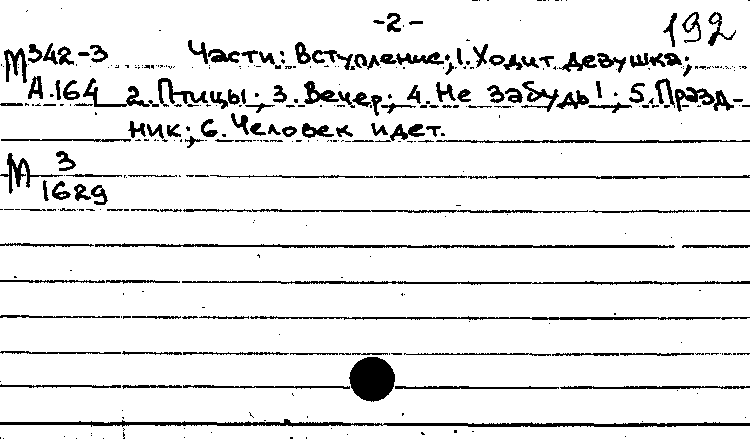 -2- 192
М342-3 Части: Вступление; 1. Ходит девушка;
А.164 2. Птицы; 3. Вечер; 4. Не забудь!; 5. Празд-
ник; 6. Человек идет.
М 3
1629